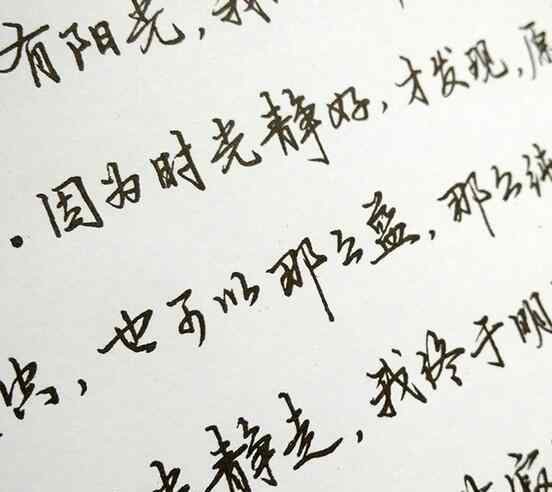 有阳光，我
。因为时光静好，才发现，原
，也可以那么蓝，那么纯
静走，我终于明